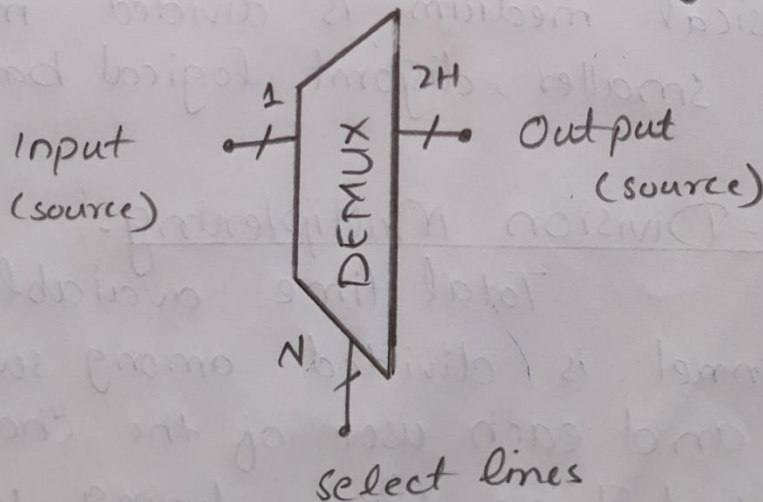 1
2H
Input
(source)
DEMUX
Output
(source)
N
select lines